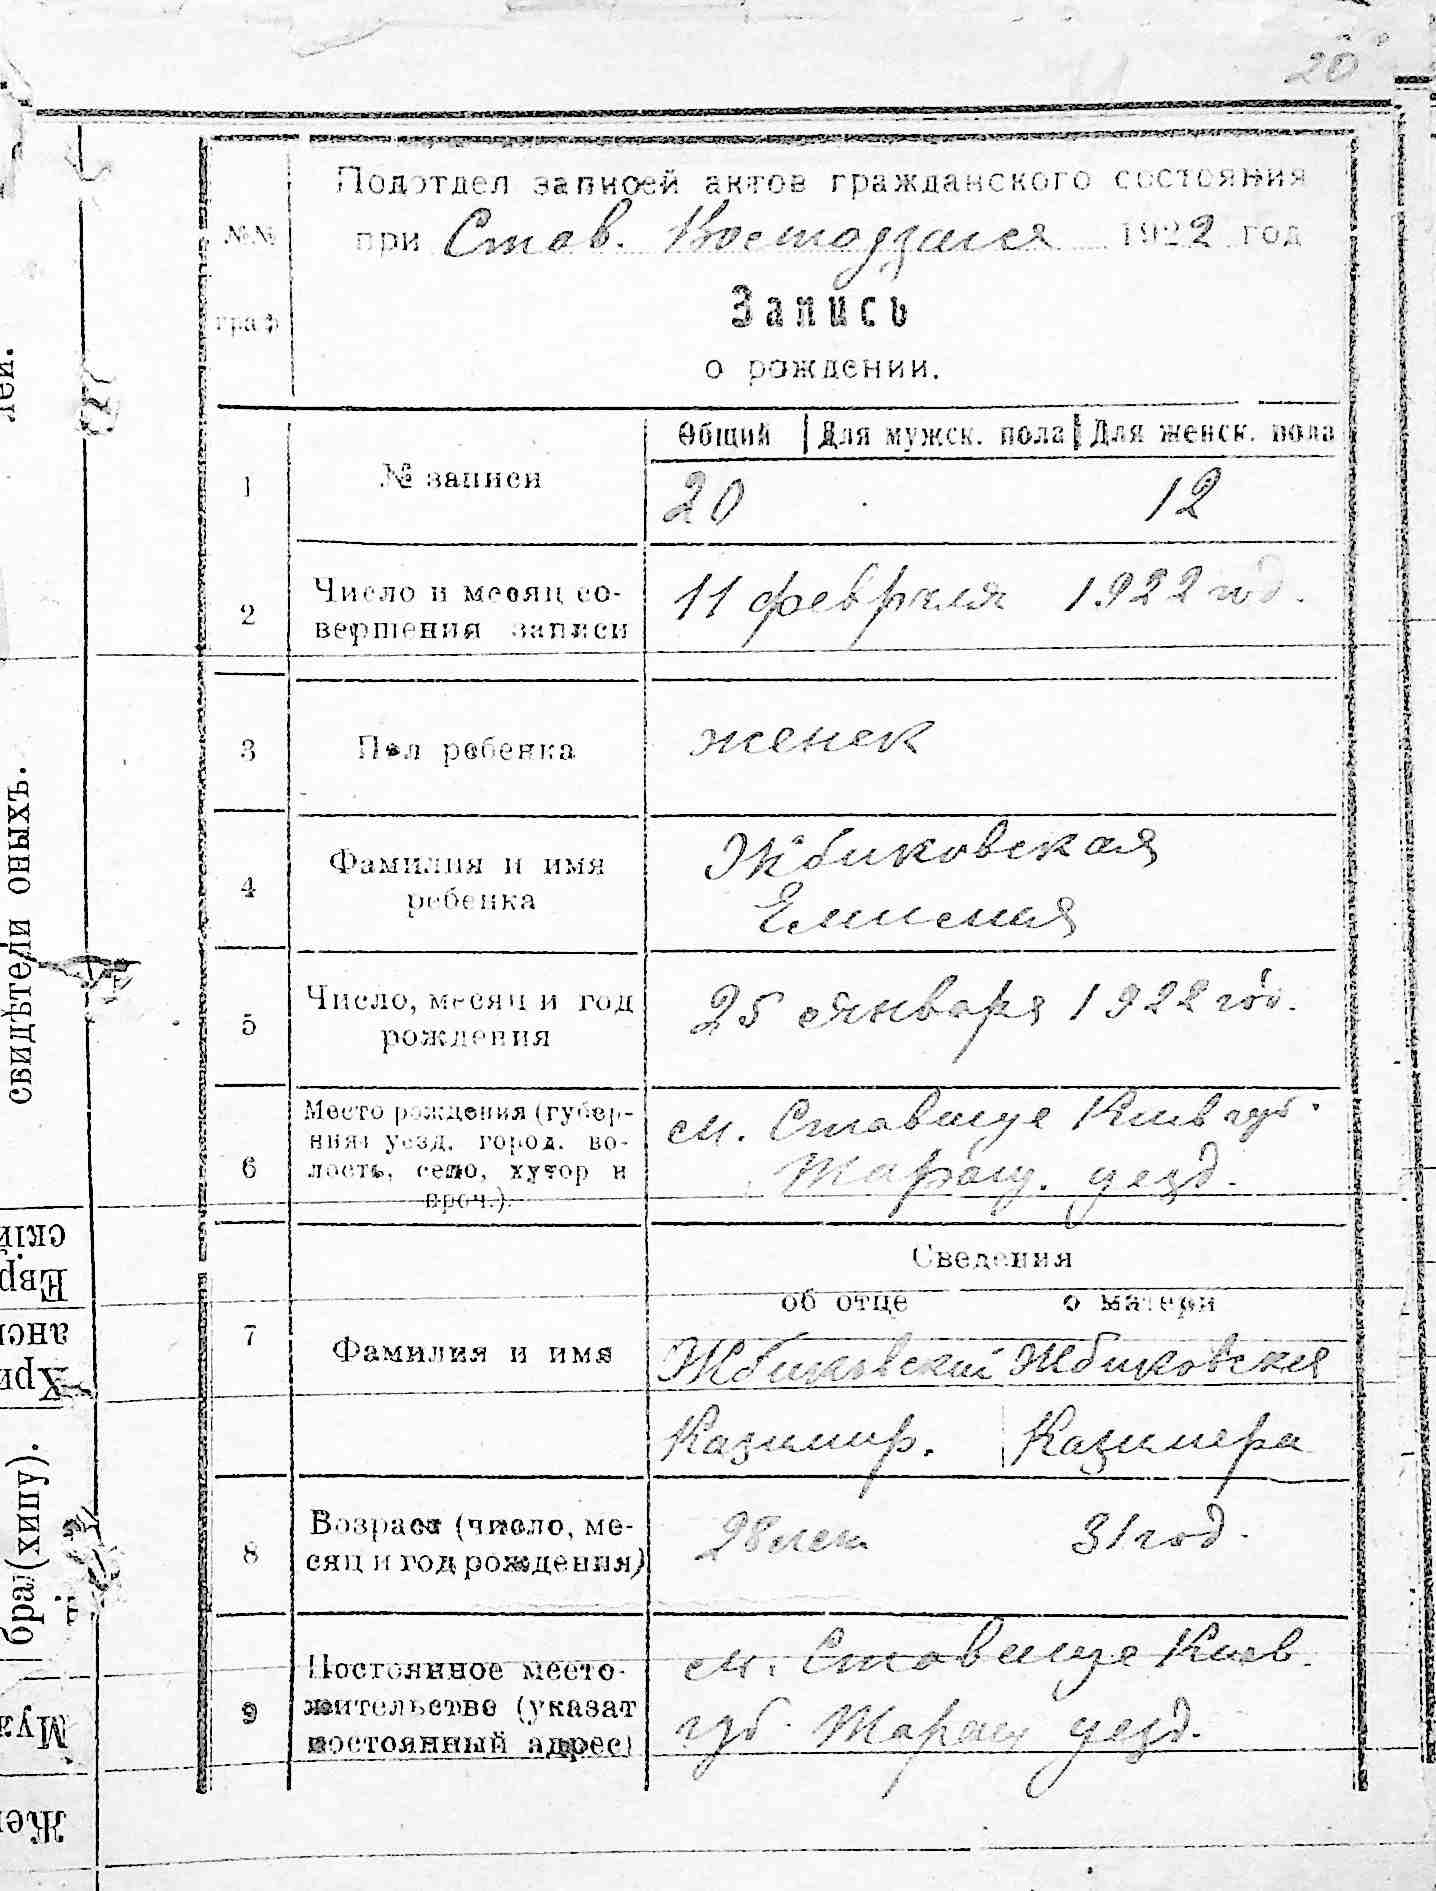 20
Подотдел записей актов гражданского состояния
при Став. 1922 год
Запись
о рождении.
№№
граф
Общий Для мужск. пола Для женск. пола
1 № записи 20 12
2 Число и месяц со-
вершения записи
11 февраля 1922 год.
3 Пол ребенка женск
4 Фамилия и имя
ребенка
Жбиковская
5 Число, месяц и год
рождения
25 января 1922 год.
6 Место рождения (губер-
ния, уезд, город, во-
лость, село, хутор и
проч.).
м. Ставище Киев губ.
Таращ. уезд.
Сведения
об отце о матери
7 Фамилия и имя
Жбиковский Жбиковская
Казимир. Казимера
8 Возраст (число, ме-
сяц и год рождения)
28 лет 31 год.
9 Постоянное место-
жительство (указат
постоянный адрес)
м. Ставище Киев.
губ. Таращ уезд.
лей.
свидѣтели оныхъ.
скій
Евр
Хри
бра (хипу).
Муж
Жен